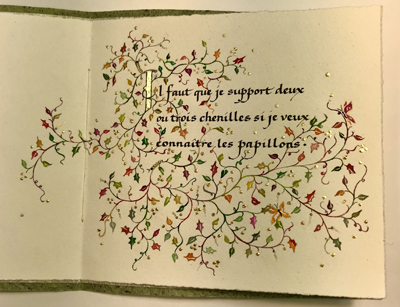 Il faut que je support deux
ou trois chenilles si je veux
connaitre les papillons.